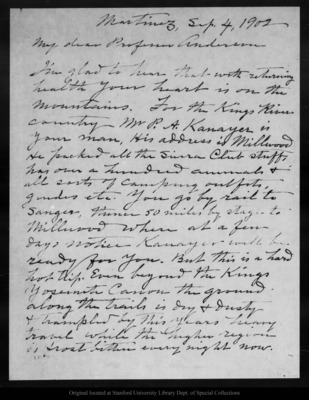 Martinez, Sep. 4, 1902
My dear Professor Anderson
I'm glad to hear that with returning
health your heart is on the
mountains. For the Kings River
country Mr P. A. Kanayer is
your man, His address is Millwood
He packed all the Sierra Club stuff,
has over a hundred animals &
all sorts of camping outfits,
guides etc. You go by rail to
Sanger, thence 50 miles by stage to
Millwood where at a few
days notice Kanayer will be
ready for you. But this is a hard
hot trip. Even beyond the Kings
Yosemite Canon the ground
along the trails is dry & dusty
& trampled by this years heavy
travel while the higher region
is frost bitten every night now.
Original located at Stanford University Library Dept. of Special Collections